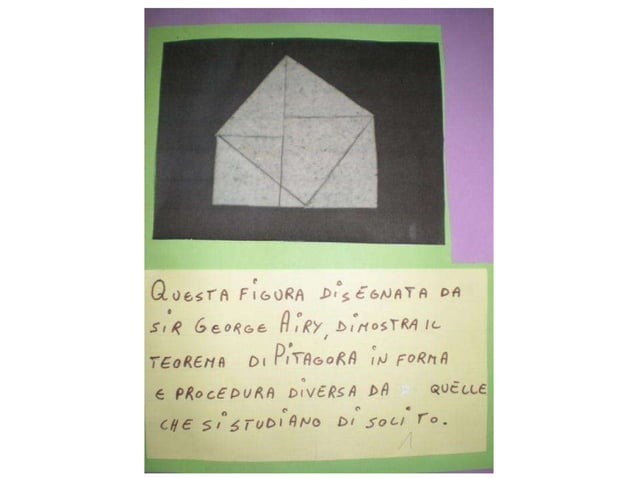 QUESTA FIGURA DISEGNATA DA
SIR GEORGE AIRY, DIMOSTRA IL
TEOREMA DI PITAGORA IN FORMA
E PROCEDURA DIVERSA DA QUELLE
CHE SI STUDIANO DI SOLITO.